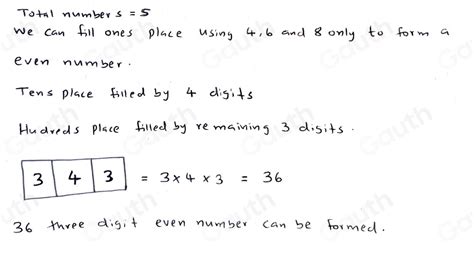 Total numbers = 5
We can fill ones place using 4,6 and 8 only to form a
even number.
Tens place filled by 4 digits
Hudreds place filled by remaining 3 digits.
3 4 3 = 3 x 4 x 3 = 36
36 three digit even number can be formed.